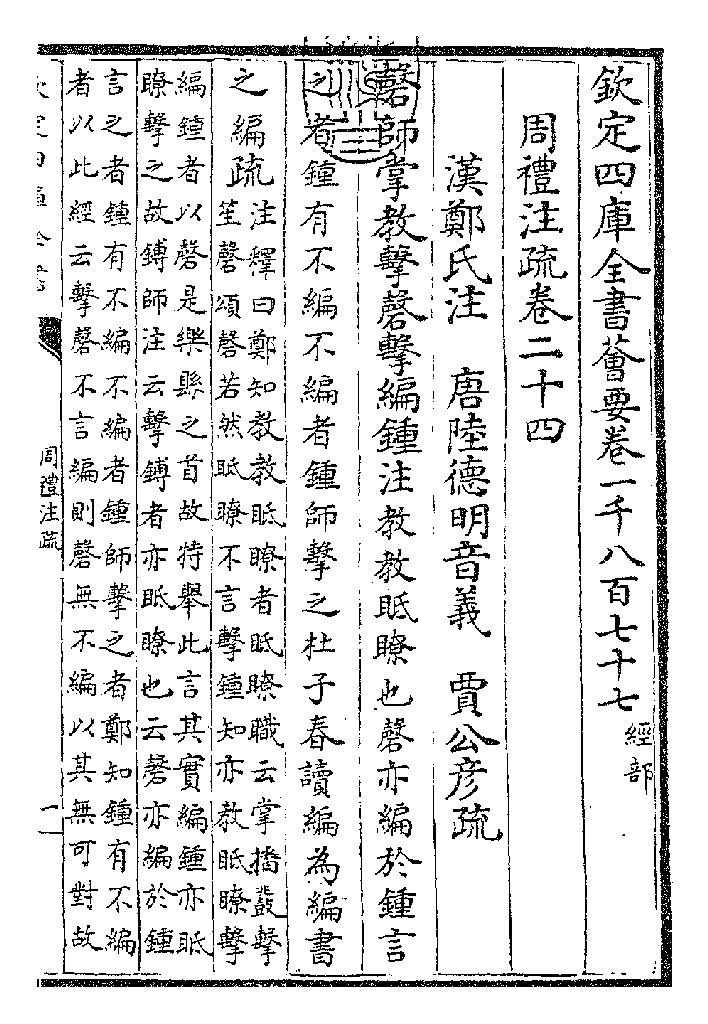 欽定四庫全書薈要卷一千八百七十七
經部
周禮注疏卷二十四
漢鄭氏注　唐陸德明音義　賈公彦疏
磬師掌教擊磬擊編鍾注教教眡瞭也磬亦編於鍾言
之者鍾有不編不編者鍾師擊之杜子春讀編為編書
之編疏
注釋曰鄭知教教眡瞭者眡瞭職云掌播鼗擊
笙磬頌磬若然眡瞭不言擊鍾知亦教眡瞭擊
編鍾者以磬是樂縣之首故特舉此言其實編鍾亦眡
瞭擊之故鎛師注云擊鎛者亦眡瞭也云磬亦編於鍾
言之者鍾有不編不編者鍾師擊之者鄭知鍾有不編
者以此經云擊磬不言編則磬無不編以其無可對故
周禮注疏
一